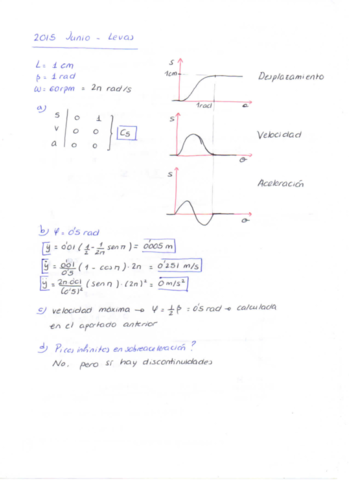 2015 Junio - Levas
L = 1 cm
β = 1 rad
ω = 60rpm = 2π rad/s
a)
s 0 1
v 0 0
a 0 0
C5
s
1cm
1rad
θ
Desplazamiento
s
θ
Velocidad
s
θ
Aceleración
b) ψ = 0'5 rad
y = 0'01 (1/2 - 1/2π sen π) = 0'005 m
ẏ = 0'01/0'5 (1 - cos π) · 2π = 0'251 m/s
ÿ = 2π·0'01/(0'5)² (sen π) · (2π)² = 0 m/s²
c) velocidad máxima → ψ = 1/2 β = 0'5 rad → calculada
en el apartado anterior
d) Picos infinitos en sobreaceleración?
No, pero sí hay discontinuidades